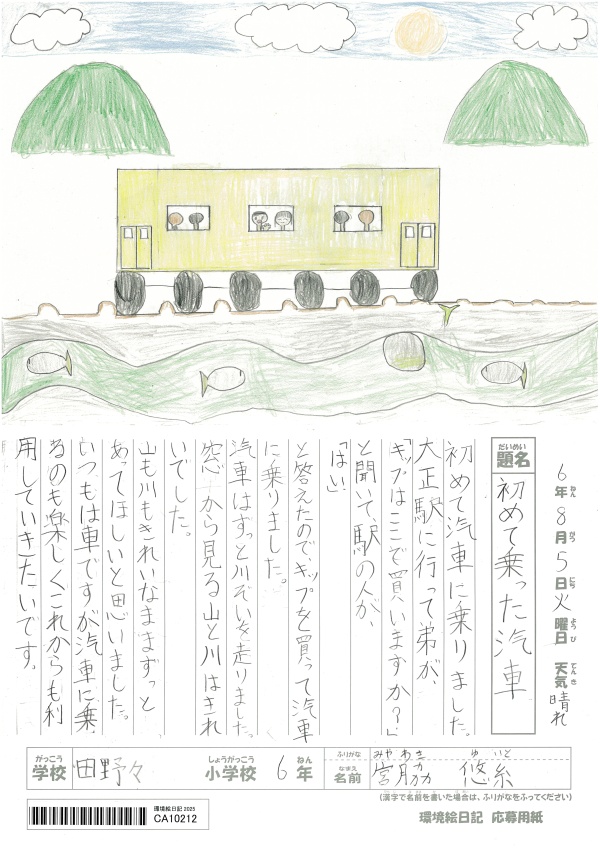 6年8月5日火曜日 天気晴れ
ねん がつ にち ようび てんき
だいめい
題名 初めて乗った汽車
初めて汽車に乗りました。
大正駅に行って弟が、
「キップはここで買いますか?」
と聞いて、駅の人が、
「はい」
と答えたのでキップを買って汽車
に乗りました。
汽車はずっと川ぞいを走りました。
窓から見る山と川はきれ
いでした。
山も川もきれいなままずっと
あってほしいと思いました。
いつもは車ですが汽車に乗
るのも楽しくこれからも利
用していきたいです。
がっこう しょうがっこう ねん
学校 田野々 小学校 6年
ふりがな みやわき ゆいと
なまえ
名前 宮脇 悠糸
(漢字で名前を書いた場合は、ふりがなをふってください)
環境絵日記 2025
CA10212
環境絵日記 応募用紙